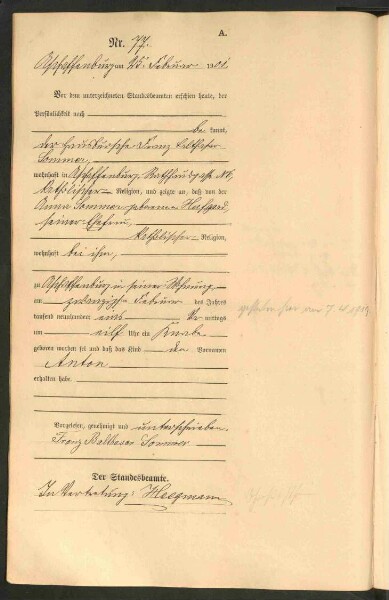 A.
Nr. 77.
Aschaffenburg am 25. Februar 1901.
Vor dem unterzeichneten Standesbeamten erschien heute, der
Persönlichkeit nach
be kannt,
der Hausbursche Franz
Sommer,
wohnhaft in Aschaffenburg,
katholischer Religion, und zeigte an, daß von der
Anna Sommer geborenen
seiner Ehefrau
katholischer Religion,
wohnhaft bei ihm,
zu Aschaffenburg in seiner Wohnung
am zwanzigsten Februar des Jahres
tausend neunhundert eins Vor mittags
um eilf Uhr ein Knabe
geboren worden sei und daß das Kind den Vornamen
Anton
erhalten habe.
Vorgelesen, genehmigt und unterschrieben.
Franz Balthasar Sommer
Der Standesbeamte.
In Vertretung: